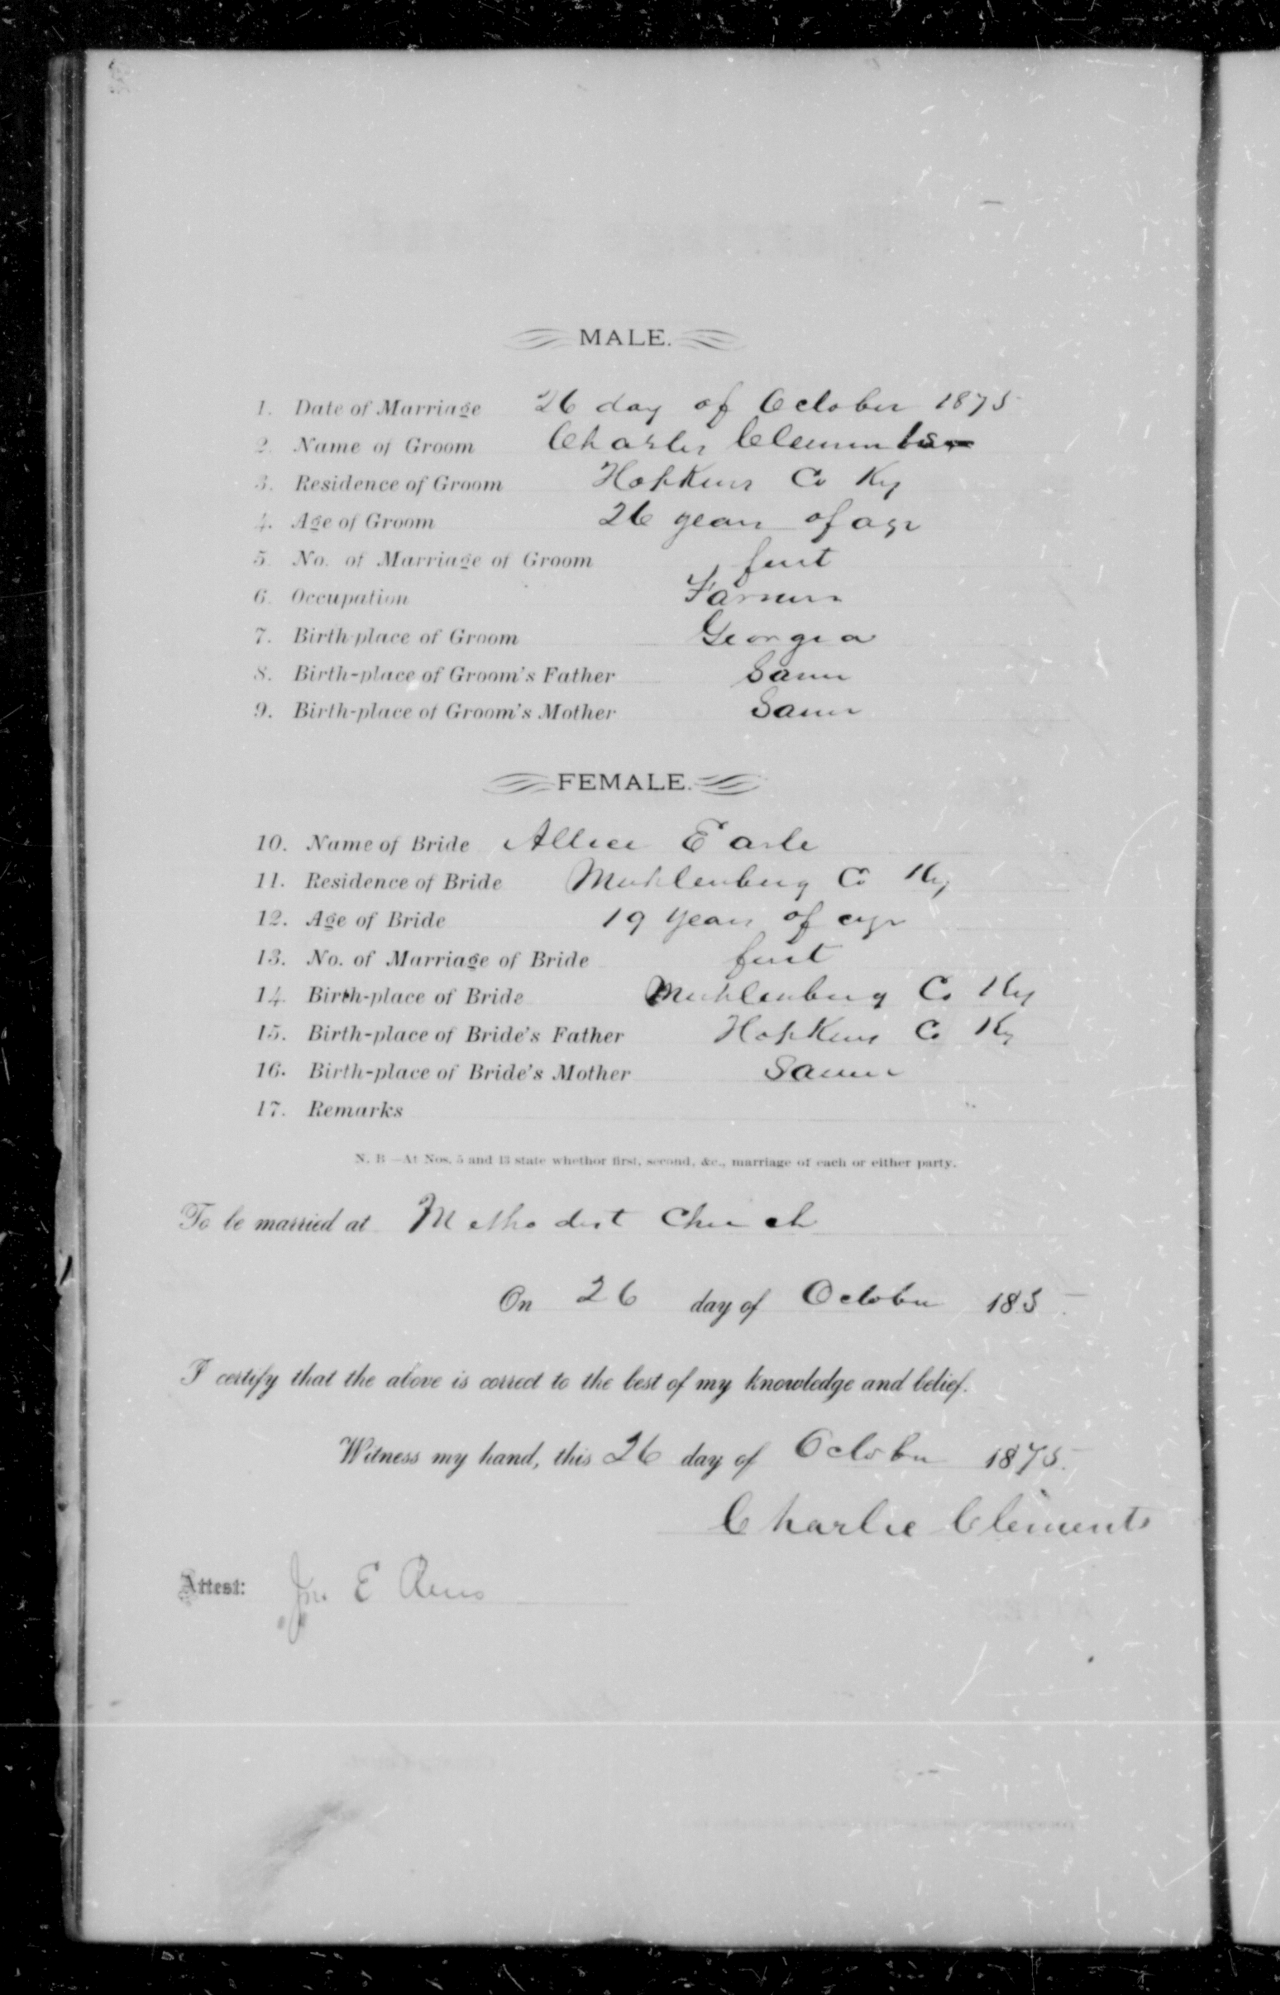 MALE.
1. Date of Marriage 26 day of October 1875
2. Name of Groom Charles Clements
3. Residence of Groom Hopkins Co Ky
4. Age of Groom 26 years of age
5. No. of Marriage of Groom first
6. Occupation Farmer
7. Birth-place of Groom Georgia
8. Birth-place of Groom's Father Same
9. Birth-place of Groom's Mother Same
FEMALE.
10. Name of Bride Allice Earle
11. Residence of Bride Muhlenburg Co Ky
12. Age of Bride 19 years of age
13. No. of Marriage of Bride first
14. Birth-place of Bride Muhlenburg Co Ky
15. Birth-place of Bride's Father Hopkins Co Ky
16. Birth-place of Bride's Mother Same
17. Remarks
N. B —At Nos. 5 and 13 state whethor first, second, &c., marriage of each or either party.
To be married at Methodist Church
On 26 day of October 185
I certify that the above is correct to the best of my knowledge and belief.
Witness my hand, this 26 day of October 1875.
Charlie Clements
Attest: Jno. E Reno